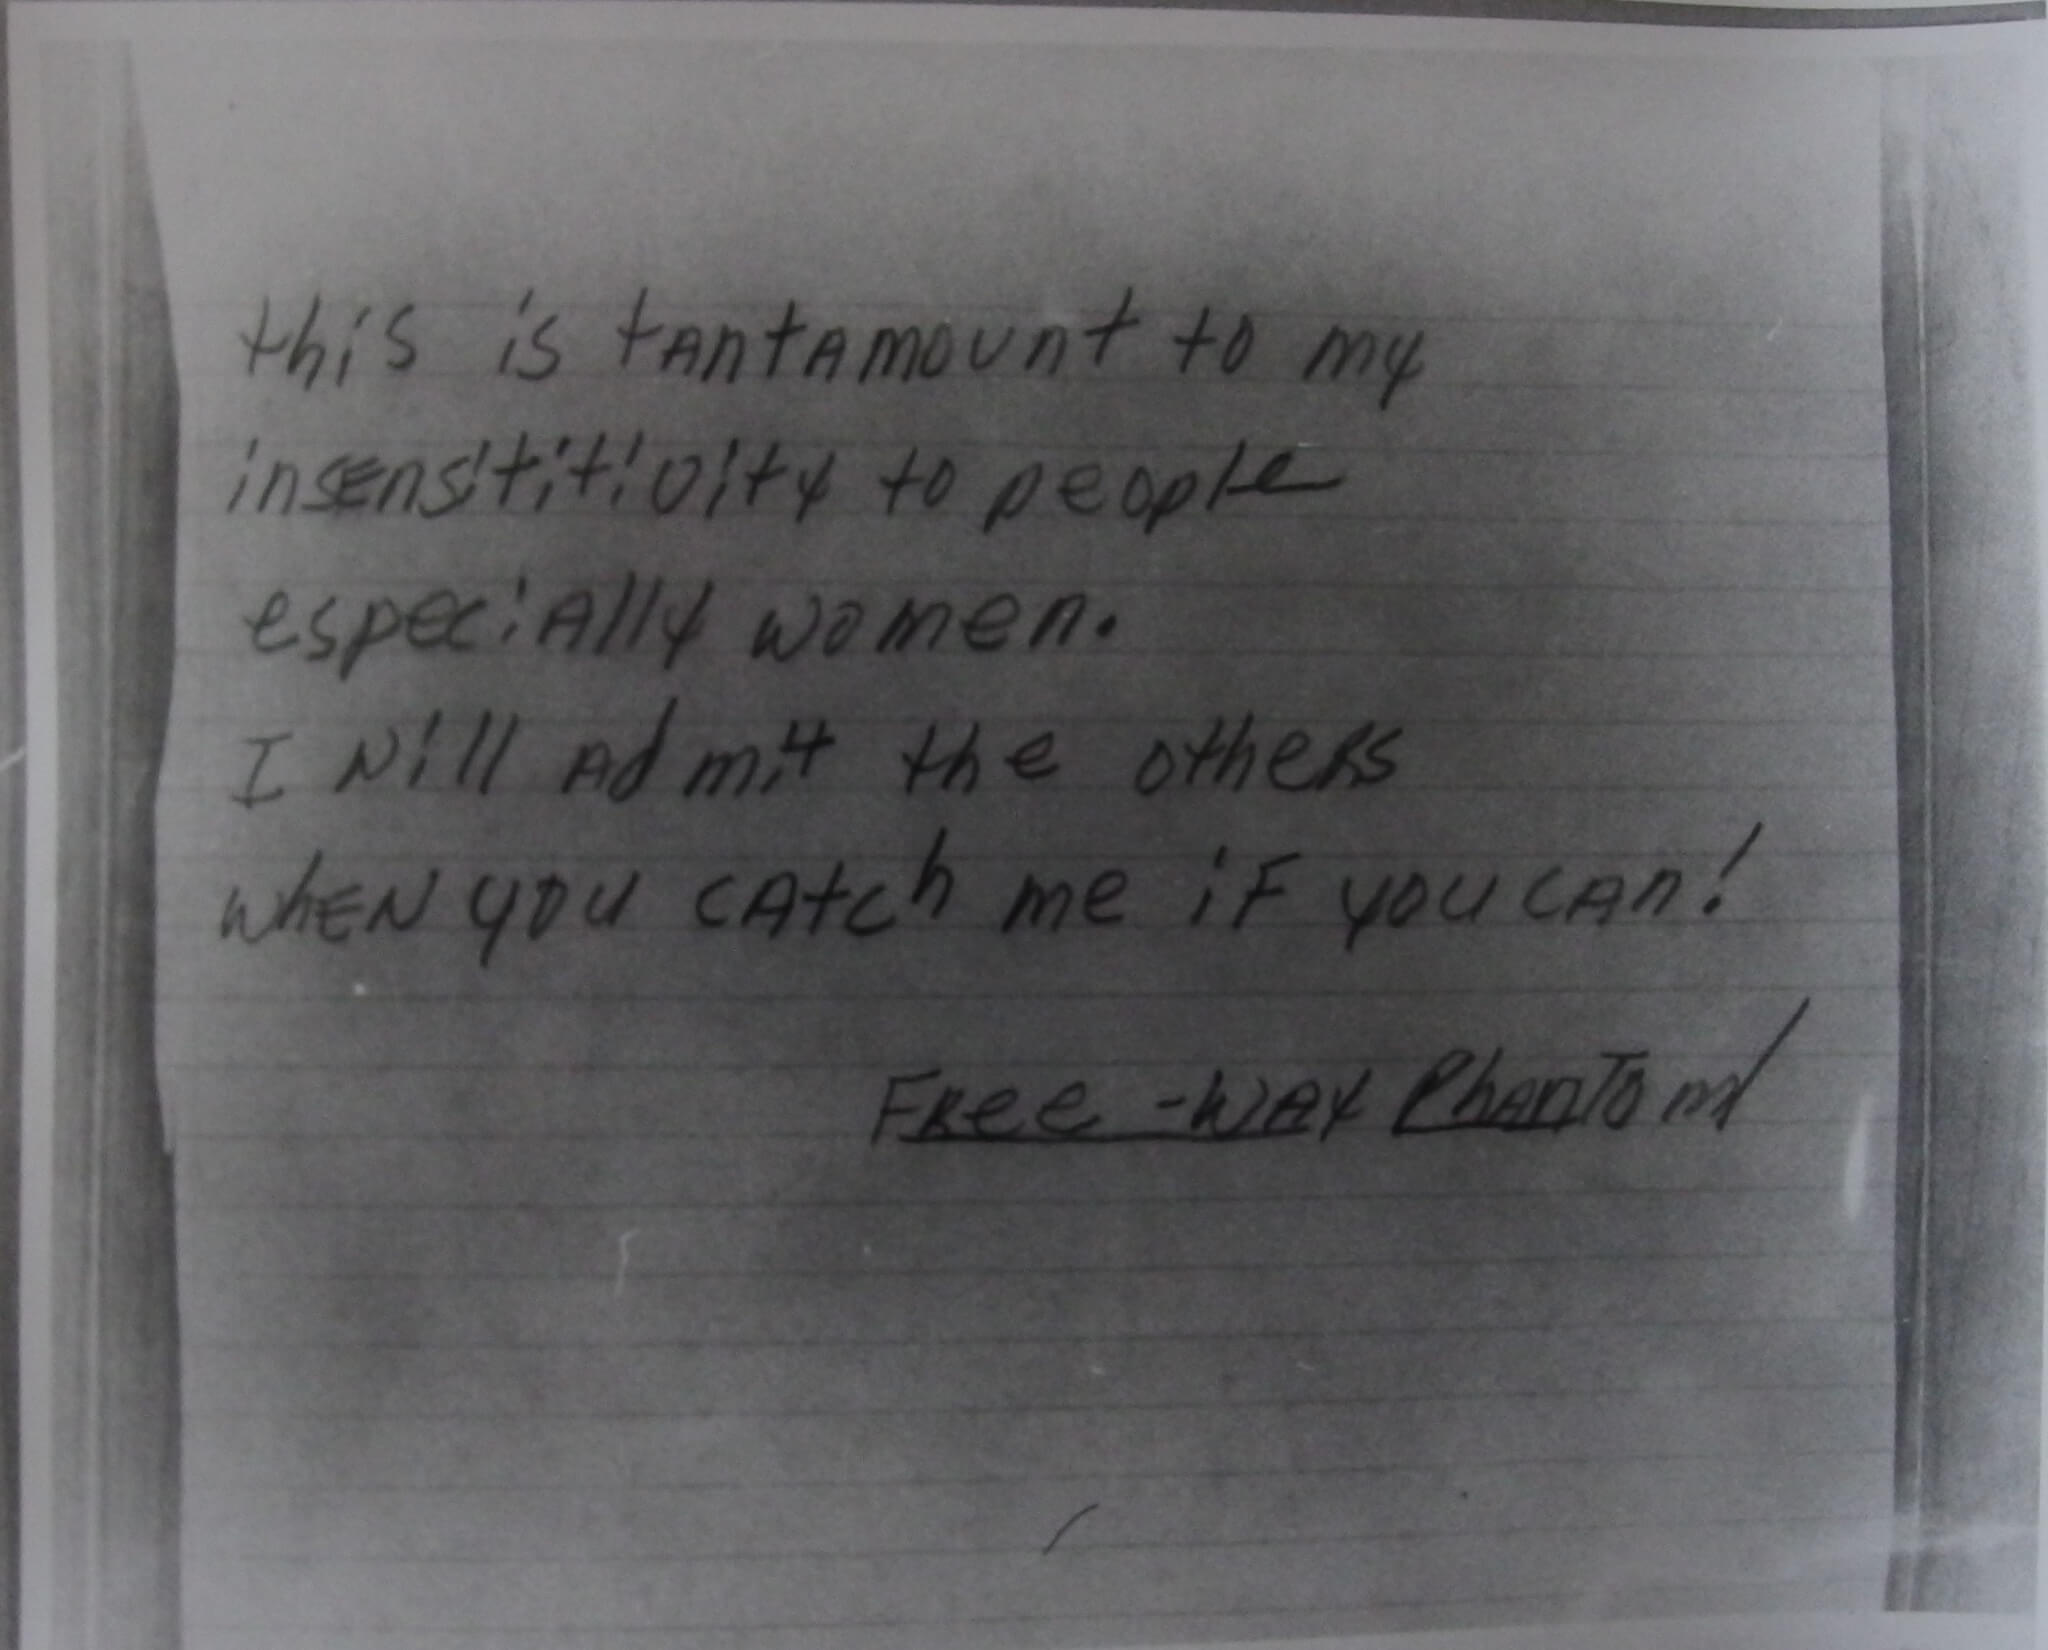 this is tAntAmount to my
insensititivity to people
especiAlly women.
I will Admit the otheRs
whEN you cAtch me iF you cAn!
FRee-wAy PhAnTom